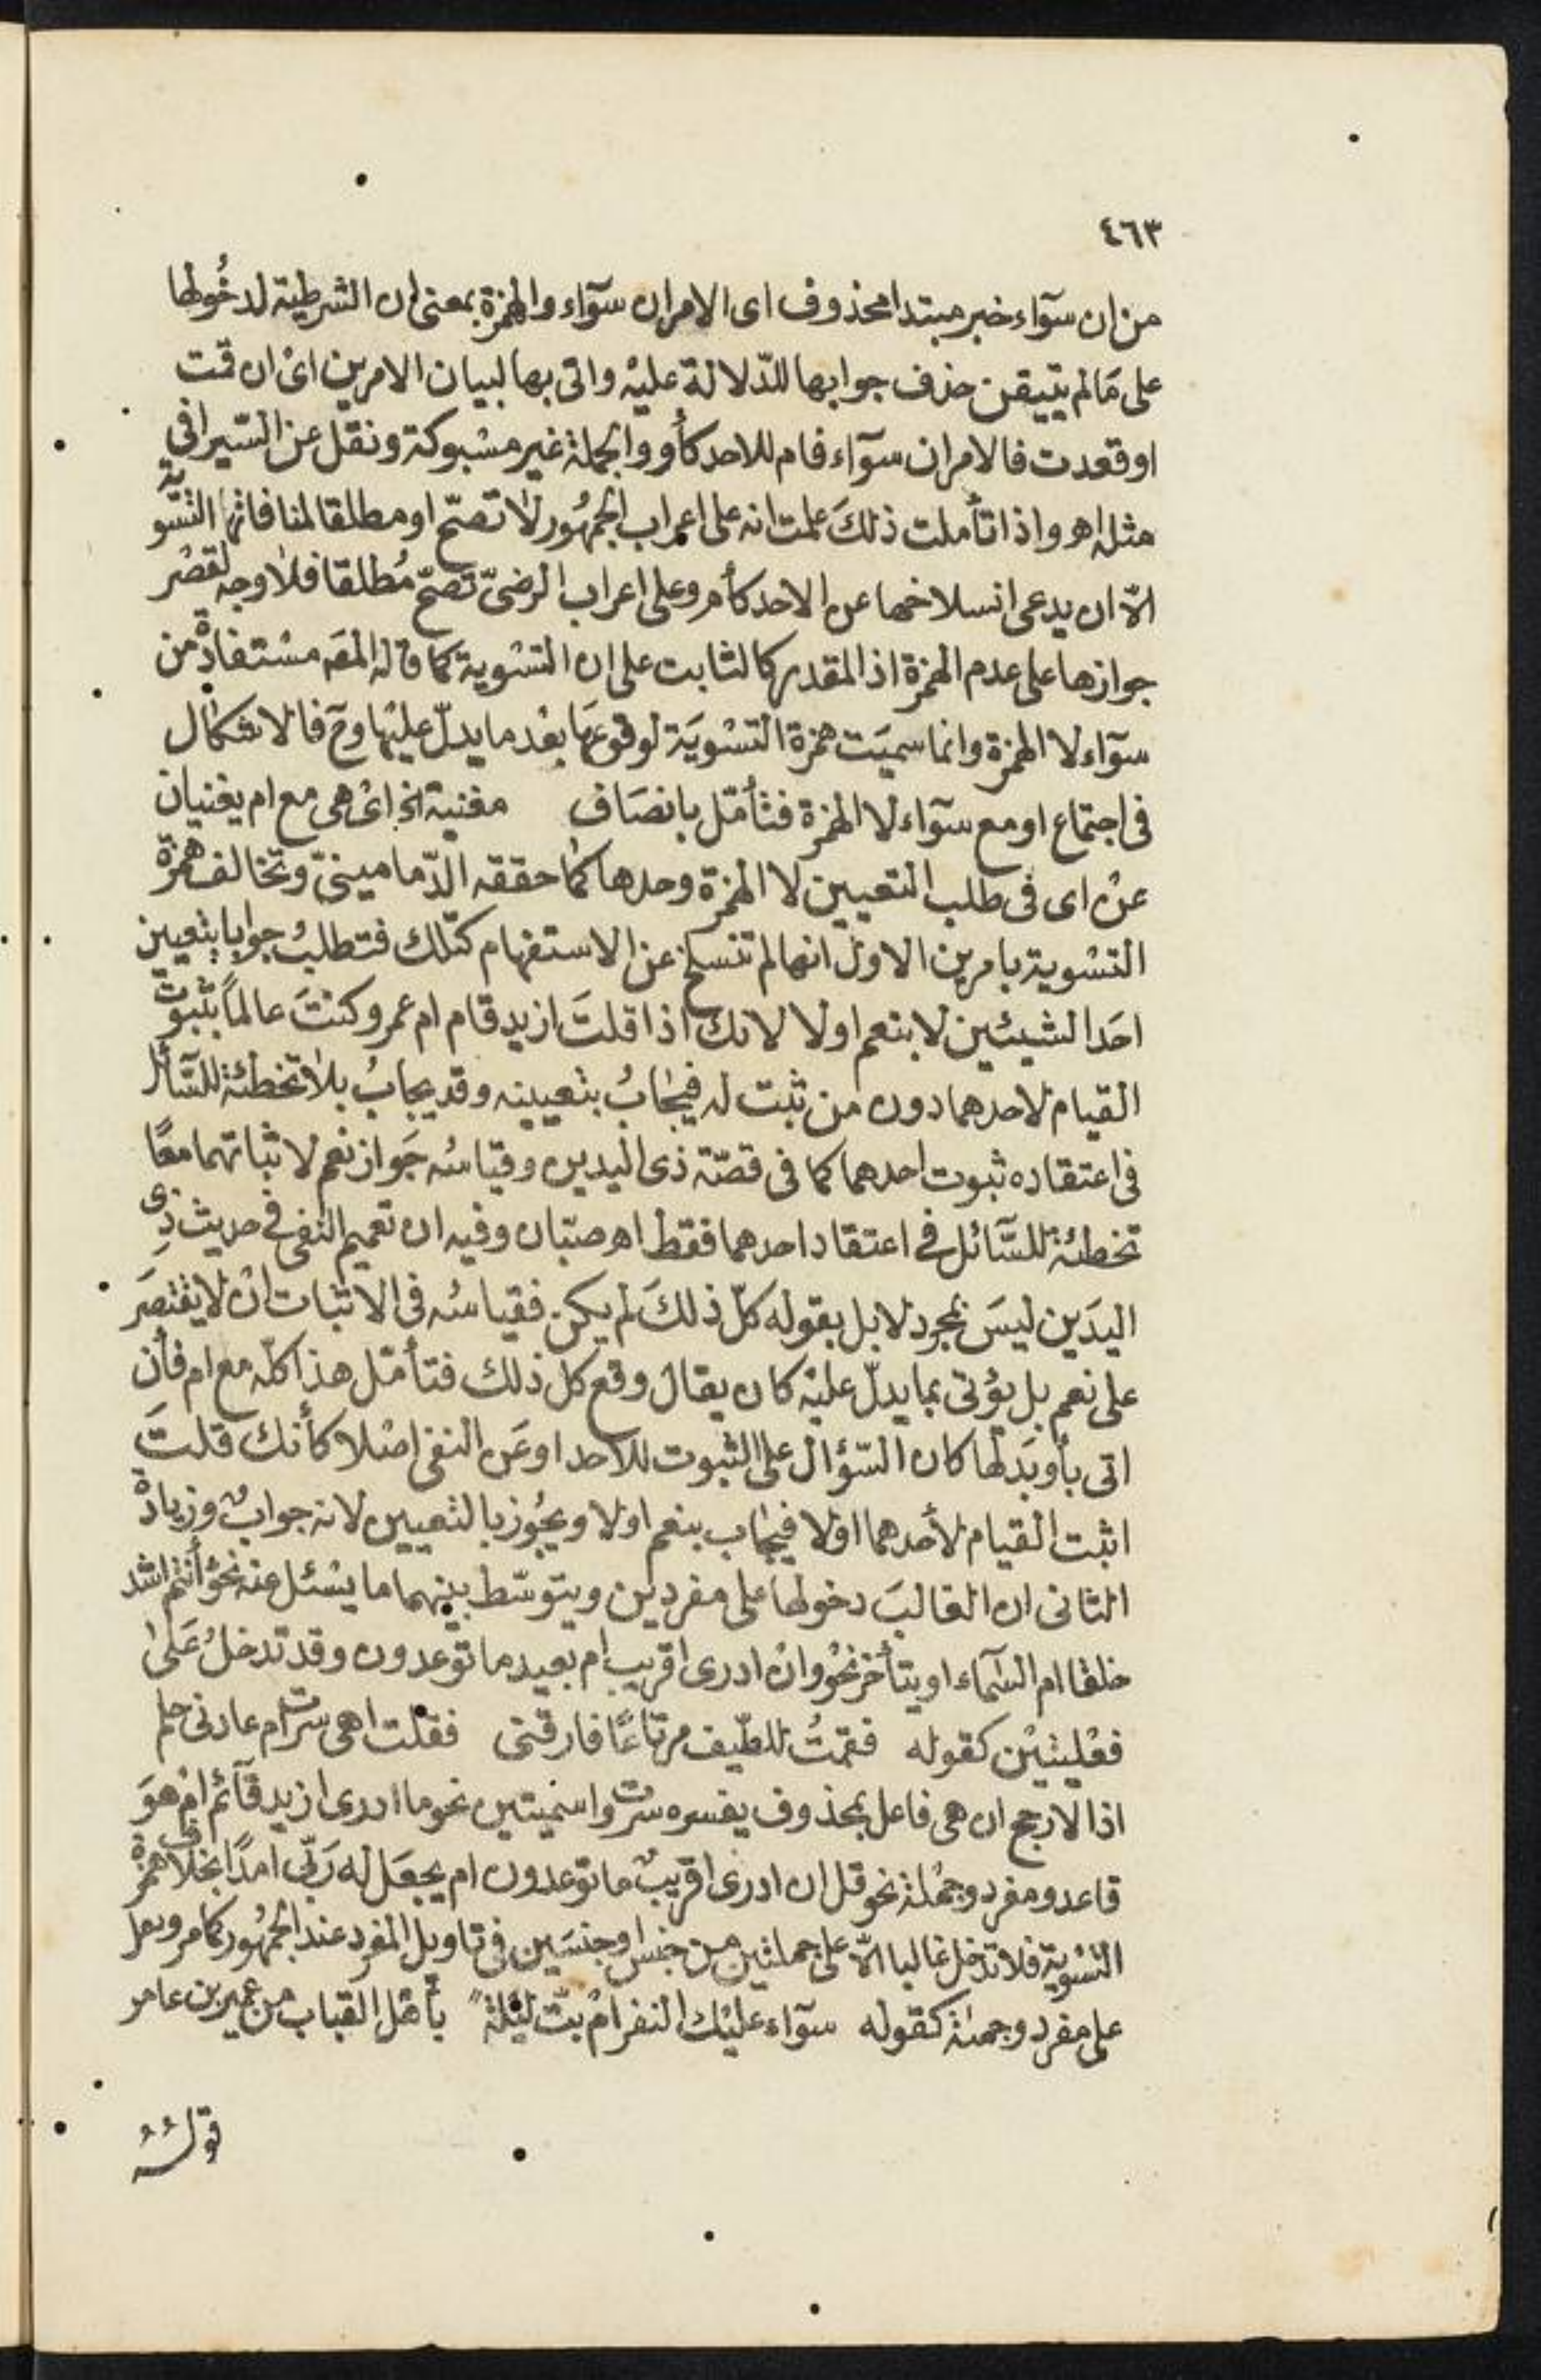 ٤٦٣
من ان سوآء خبر مبتدا محذوف اى الامران سوآء والهمزة بمعنى ان الشرطية لدخُولها
على مَا لم يتيقن حذف جوابها للدّلالة عليْه واتى بها لبيان الامرين اىْ ان قمت
او قعدت فالامران سوآء فام للاحد كأو والجملة غير مسْبوكة ونقل عن السّيرافى
مثله اهـ واذا تأملت ذلكَ علمت انه على اعراب الجمهُور لَا تصحّ او مطلقا لمنافاتها التسْوية
الّا ان يدعى انسلاخها عن الاحد كأم وعلى اعراب الرضىّ تصحّ مُطلقا فلَا وجه لقصْر
جوازها على عدم الهمزة اذ المقدر كالثابت على ان التسْوية كما قاله المصَ مسْتفادة من
سوآء لا الهمزة وانما سميَت همزة التسْويَة لوقوعهَا بعْد ما يدلّ عليْها وحَ فالاشكال
فى اجتماع او مع سوآء لا الهمزة فتأمّل بانصَاف مغنية الخ اىْ هى مع ام يغنيان
عنْ اى فى طلب التعيين لا الهمزة وحدها كمَا حققه الدّمامينىّ وتخالف همزة
التسْوية بامرين الاول انها لم تنسلخ عن الاستفهام كتلك فتطلبُ جوابا بتعيين
احَد الشيئين لا بنعم او لا لانك اذا قلتَ ازيد قام ام عمرو كنتَ عالماً بثبوت
القيام لاحدهما دون من ثبت له فيجَابُ بتعيينه وقد يجابُ بلَا تخطئة للسَّائل
فى اعتقاده ثبوت احدهما كما فى قصّة ذى اليدين وقياسُه جَواز نعم لاثباتهما معًا
تخطئة للسَّائل فى اعتقاد احدهما فقط اهـ صبّان وفيه ان تعميم النفى فى حديث ذِى
اليدَين ليسَ بمجرد لا بل بقوله كلّ ذلكَ لم يكن فقياسُه فى الاثبات انْ لا يقتصَر
على نعم بل يؤتى بما يدلّ عليْه كان يقال وقع كل ذلك فتأمّل هذا كلّه مع ام فأن
اتى بأو بَدلها كان السّؤال على الثبوت للاحد او عَن النفى اصْلا كأنك قلتَ
اثبت القيام لأحدهما اوْلا فيجَاب بنعم او لا ويجُوز بالتعيين لانه جوابٌ وزيادة
الثانى ان الغالبَ دخولها على مفردين ويتوسّط بينهما ما يسْئل عنه نحوْ أأنتم اشد
خلقا ام السّمآء او يتأخر نحوْ وانْ ادرى اقريب ام بعيد ما توعدون وقد تدخلُ عَلىٰ
فعْليتيْن كقوله فقمتُ للطّيف مرتاعًا فارقنى فقلت اهى سرت ام عادنى حلم
اذ الارجح ان هى فاعل بمحذوف يفسره سرت واسْميتين نحو ما ادرى ازيد قآئم امْ هوَ
قاعد ومفرد وجمْلة نحو قل ان ادرى اقريبٌ ما توعدون ام يجعَل له رَبّى امدًا بخلاف همزة
التسْوية فلا تدْخل غالبا الّا على جملتين من جنس او جنسَين فى تاويل المفرد عند الجمهُور كما مر وتدخل
على مفرد وجملة كقوله سوآء عليْك النفر امْ بتّ ليْلة بأهْل القباب من عمير بن عامر
قولُهُ